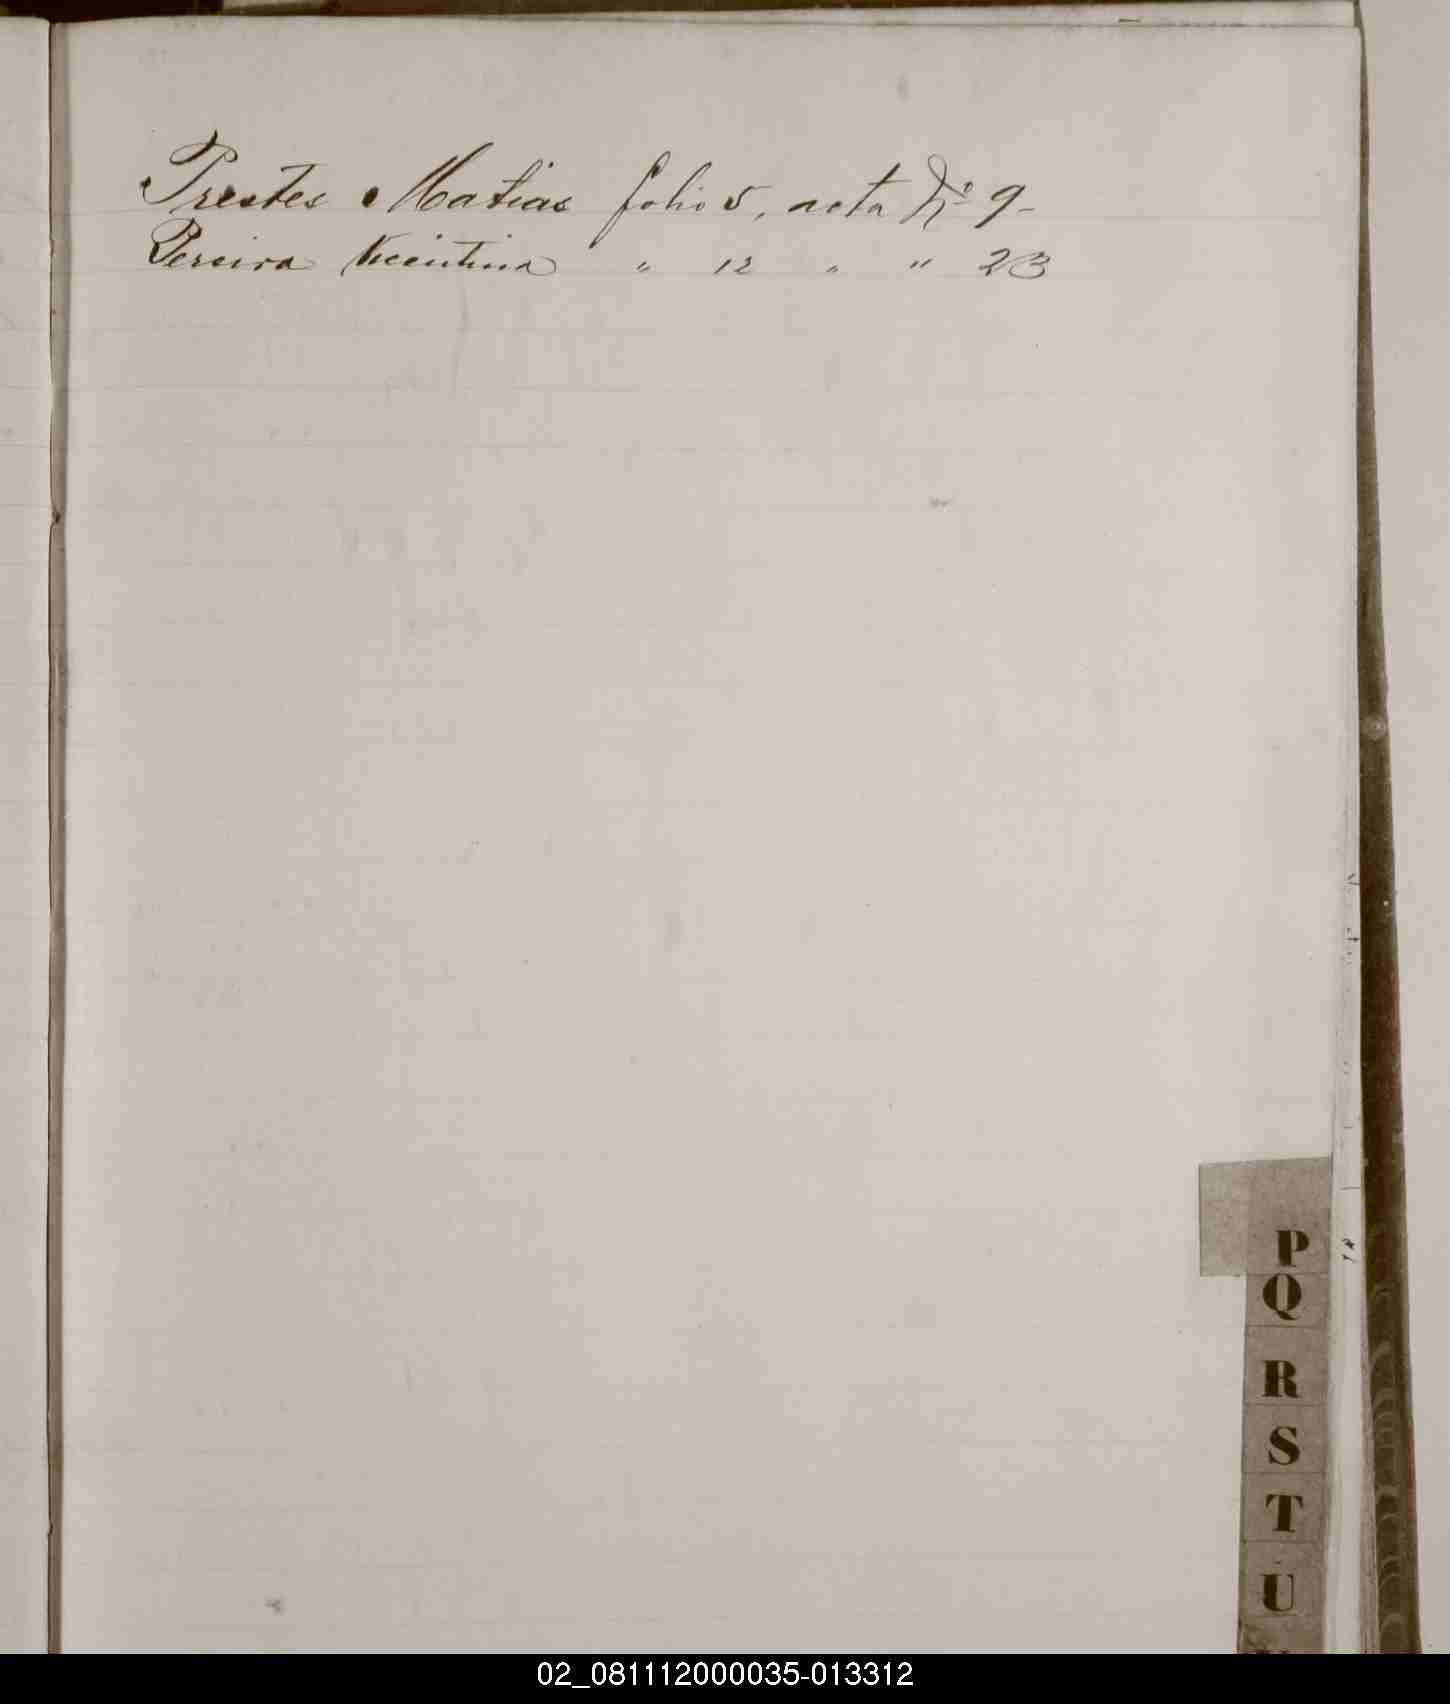 Prestes Matias folio 5, acta Nº 9-
Pereira Vicentina " 12 " " 23
P
Q
R
S
T
U
02_081112000035-013312